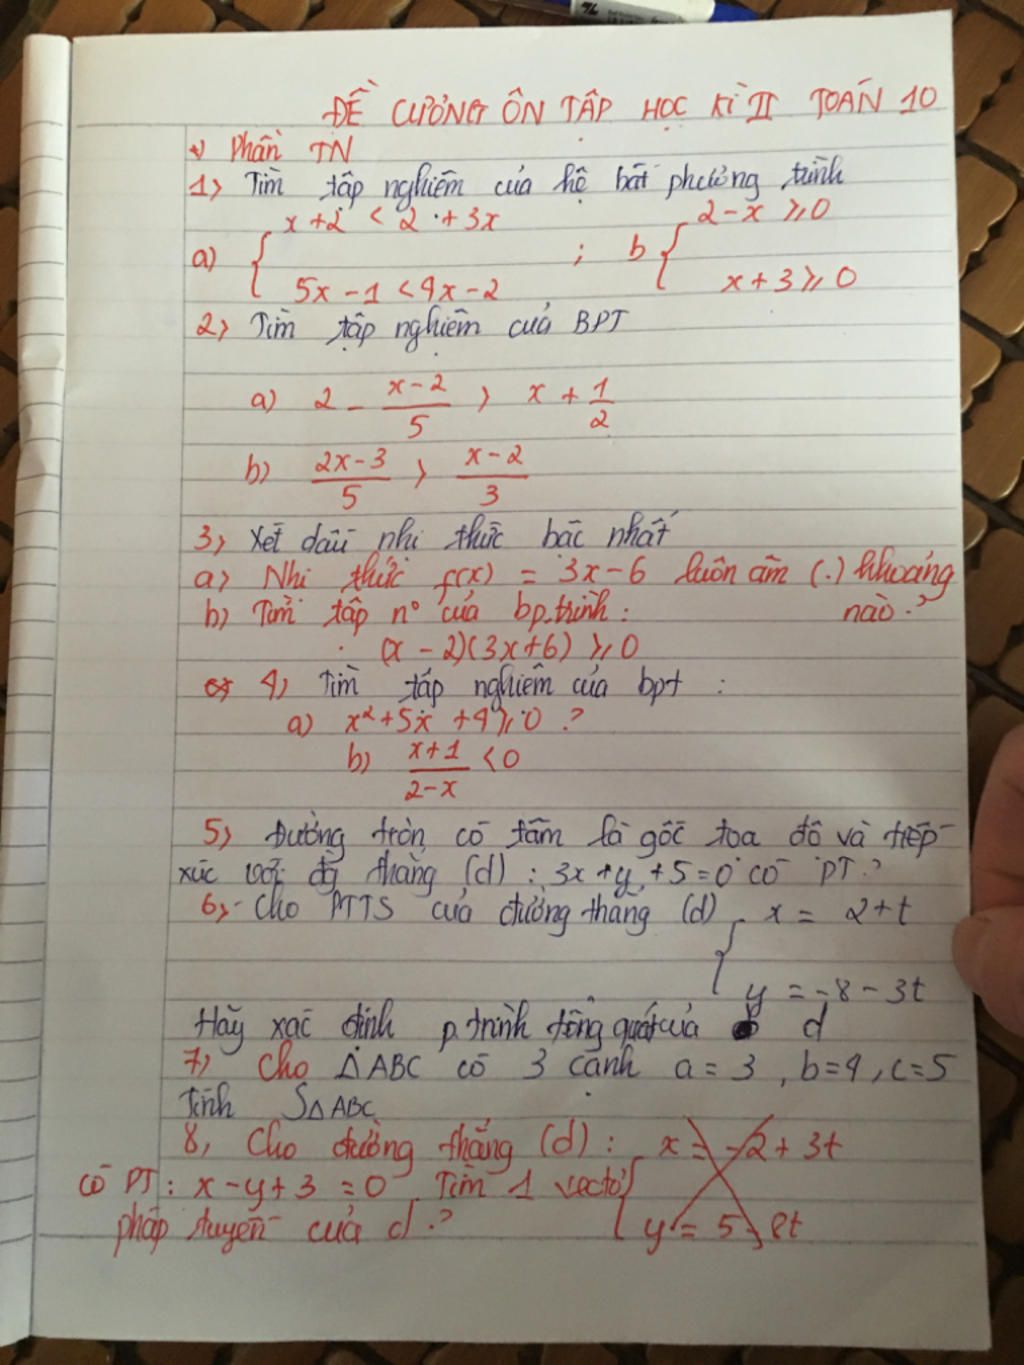 ĐỀ CƯƠNG ÔN TẬP HỌC KÌ II TOÁN 10
+) Phần TN
1) Tìm tập nghiệm của hệ bất phương trình
a) { x + 2 < 2 + 3x ; b { 2 - x ⩾ 0
5x - 1 < 4x - 2 x + 3 ⩾ 0
2) Tìm tập nghiệm của BPT
a) 2 - (x - 2)/5 > x + 1/2
b) (2x - 3)/5 > (x - 2)/3
3) Xét dấu nhị thức bậc nhất
a) Nhị thức f(x) = 3x - 6 luôn âm (.) khoảng
nào?
b) Tìm tập n° của bp.trình:
(x - 2)(3x + 6) ⩾ 0
4) Tìm tấp nghiệm của bpt :
a) x² + 5x + 4 ⩾ 0 ?
b) (x + 1)/(2 - x) < 0
5) Đường tròn có tâm là gốc tọa độ và tiếp
xúc với đg thẳng (d) : 3x + y + 5 = 0 có PT?
6) - Cho PTTS của đường thẳng (d) { x = 2 + t
y = -8 - 3t
Hãy xác định p.trình tổng quát của d
7) Cho △ABC có 3 cạnh a = 3 , b = 4 , c = 5
Tính S△ABC
8, Cho đường thẳng (d) : x = -2 + 3t
có PT : x - y + 3 = 0 Tìm 1 vectơ {
pháp tuyến của d ? y = 5 - 8t